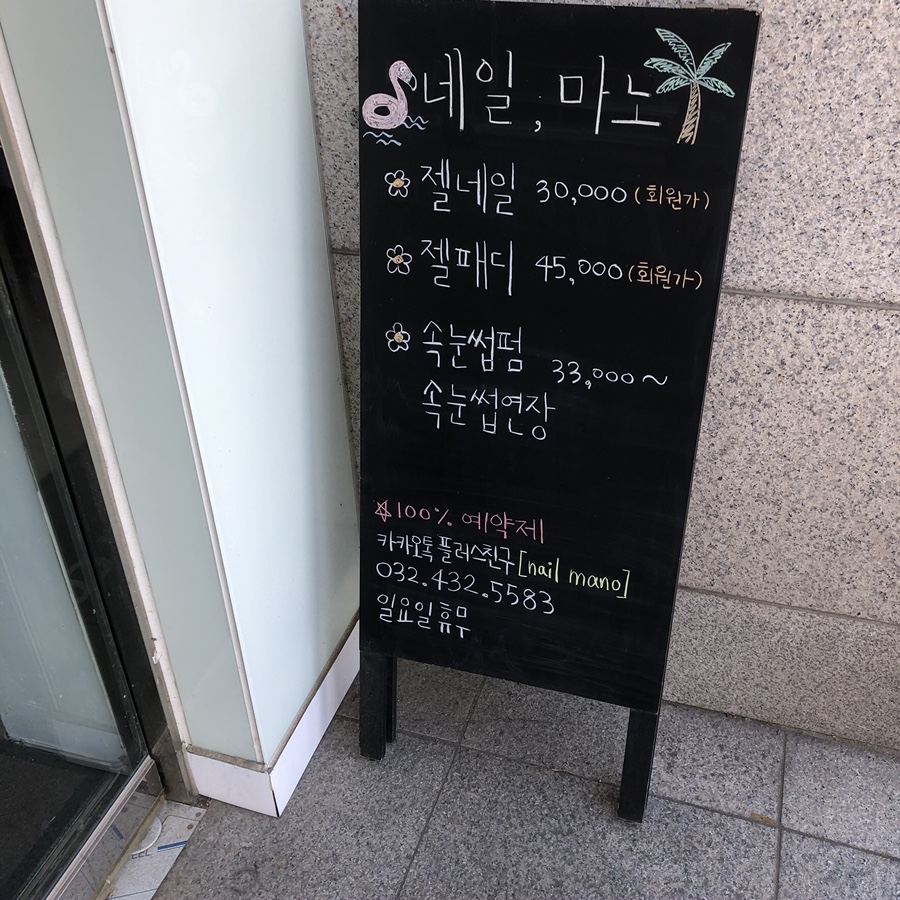 네일; 마노
젤네일 30,000 (회원가)
젤패디 45,000 (회원가)
속눈썹펌 33,000~
속눈썹연장
☆100% 예약제
카카오톡 플러스친구 [nail mano]
032.432.5583
일요일휴무